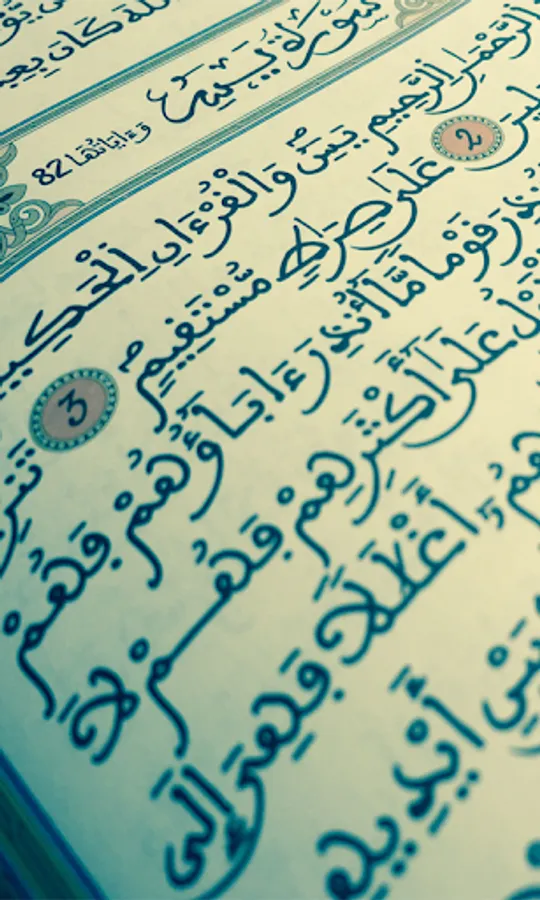 للَّهَ كَانَ بِعِبَا
سُورَةُ يَسِٓ وَءَايَاتُهَا 82
الرَّحْمَٰنِ الرَّحِيمِ يَسِٓ وَالْقُرْءَانِ اِلْحَكِي
2 عَلَىٰ صِرَٰطٖ مُّسْتَقِيمٖ 3 تَنزِ
نذِرَ قَوْماً مَّآ أُنذِرَ ءَابَآؤُهُمْ فَهُمْ
لُ عَلَىٰٓ أَكْثَرِهِمْ فَهُمْ لَا
هِمُۥٓ أَغْلَٰلاً فَهِيَ إِلَى
بَيْنِ أَيْدِيهِ